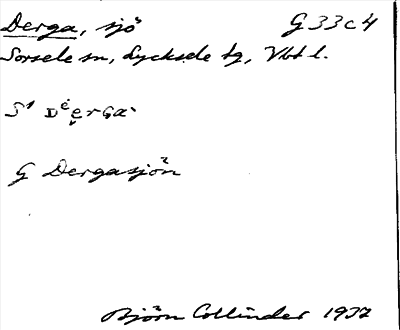 Derga, sjö G 33 c 4
Sorsele sn, Lycksele tg, Vbt l.
G Dergasjön
Björn Collinder 1937